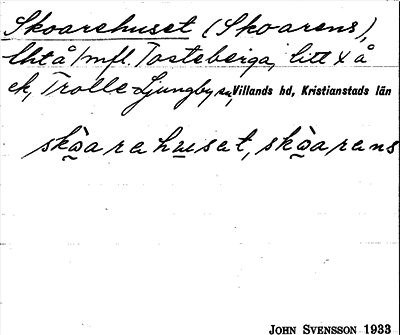 Skoarehuset (Skoarens),
lhtå/mfl. Tosteberga, litt X å
ek, Trolle-Ljungby sn, Villands hd, Kristianstads län
skòa̰rahu̲sat, skòa̰rans
JOHN SVENSSON 1933